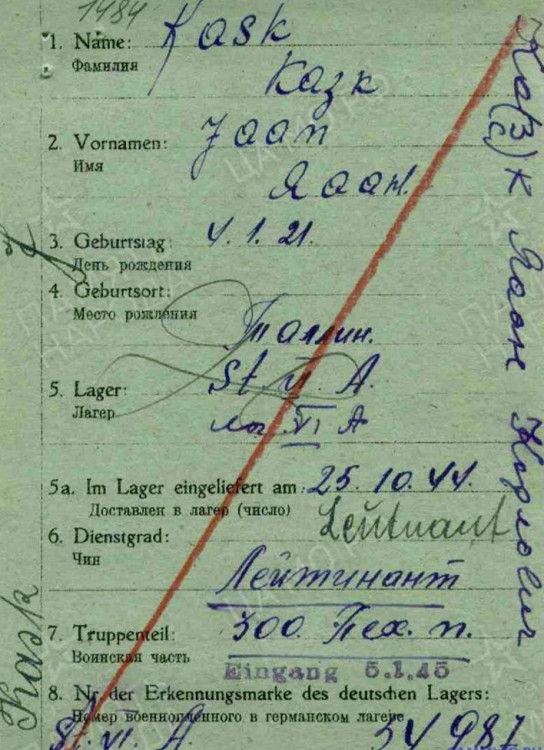 1984
1. Name: Kask
Фамилия
Казк
2. Vornamen: Jaan
Имя
Яаан
3. Geburtstag: 4. 1. 21.
День рождения
4. Geburtsort:
Место рождения
Таллин.
5. Lager: St. VI. A.
Лагер
лаг. VI А
5a. Im Lager eingeliefert am: 25. 10. 44.
Доставлен в лагер (число)
6. Dienstgrad: Leutnant
Чин
Лейтинант
7. Truppenteil: 300. Пех. п.
Воинская часть
Eingang 5.1.45
8. Nr. der Erkennungsmarke des deutschen Lagers:
Номер военнопленного в германском лагере
St. VI. A.
Ка(з)к Яаан Карлович
Kask